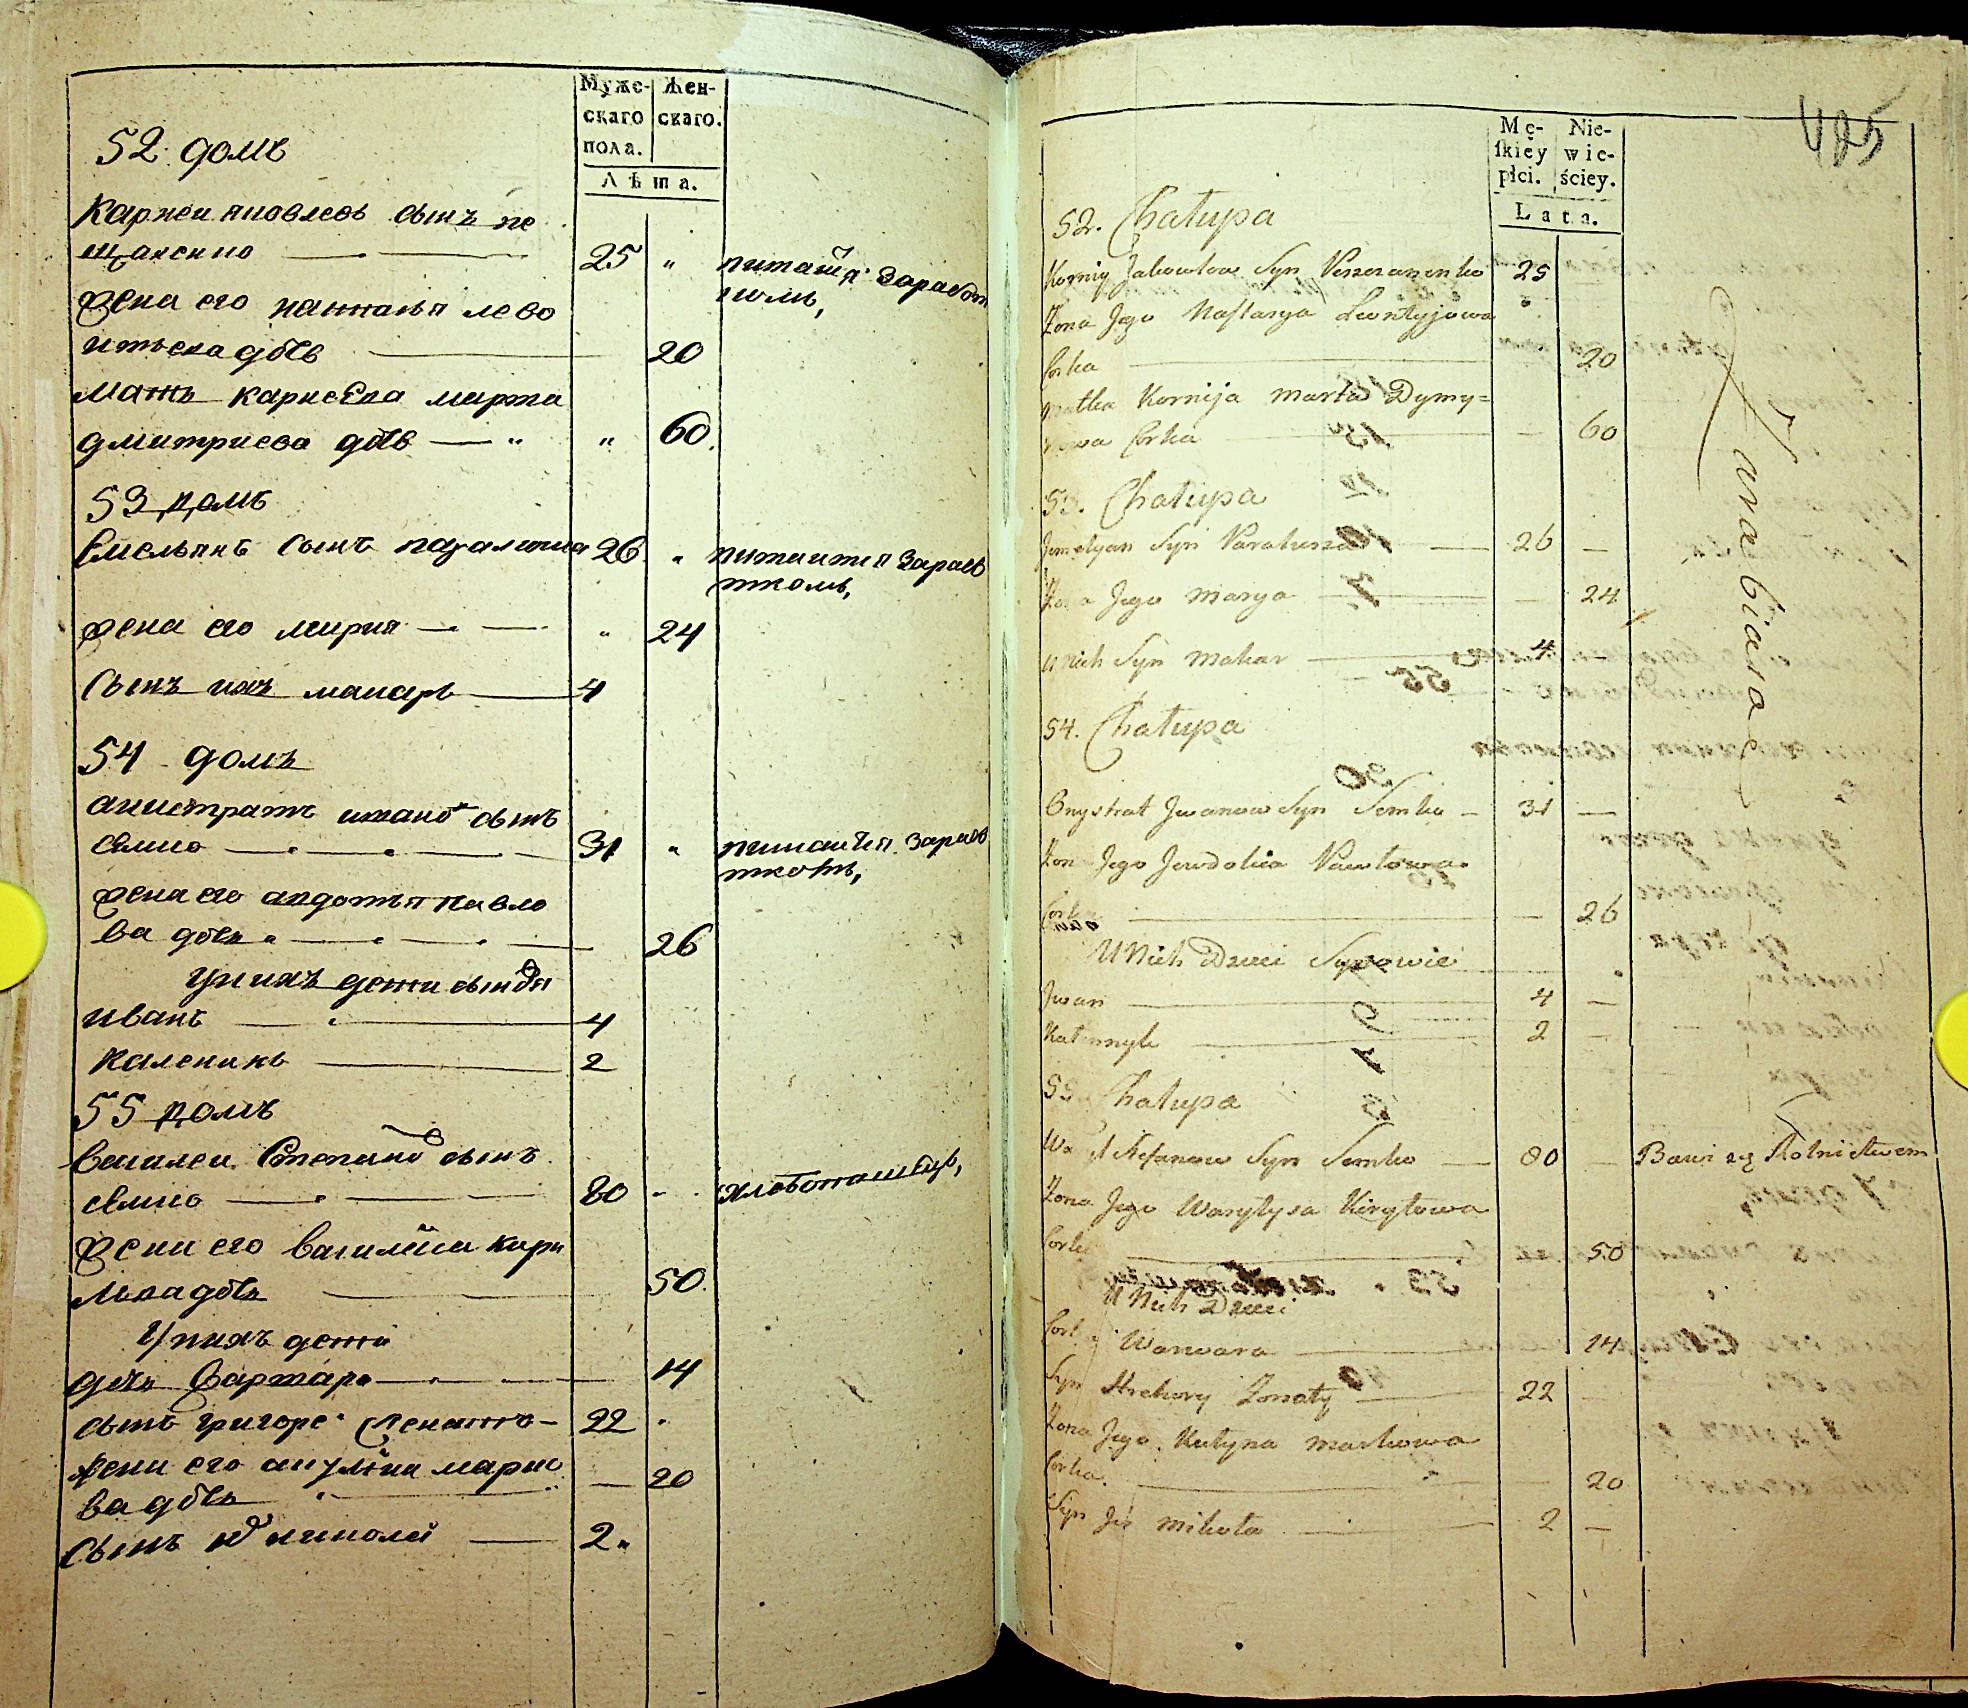 Муже- Жен-
скаго скаго.
пола.
Лѣта.
52 домъ
Карнеи яковлевъ сынъ пе
щаненко 25 "
питаится заработ
комъ,
жена его настасья лево
нтьева дочь 20
Мать карнеева марта
дмитриева дочь " 60
53 домъ
Емельянъ сынъ 26 "
питаится зараб
ткомъ,
жена его мария " 24
Сынъ ихъ макаръ 4
54 домъ
анистратъ иванов сынъ
семко 31 "
питаится зараб
ткомъ,
жена его авдотья павло
ва дочь 26
у них дети сыновя
иванъ 4
каленикъ 2
55 домъ
василеи Степанов сынъ
семко 80
хлебопашецъ,
жена его василиса кири
лова дочь 50
У них дети
дочь варвара 14
сынъ григоре женатъ 22
жена его акулина марко
ва дочь 20
сынъ николай 2
425
Mę- Nie-
skiey wie-
płci. ściey.
Lata.
52. Chałupa
Korniy Jakowlow Syn 25
Żona Jego Nastasya Leontyjowa
Corka 20
Matka Kornija Marta Dymy=
rowa Corka 60
Zarabiaia
53. Chałupa
Jemelyan Syn 26
Żona Jego Marya 24
U Nich Syn Makar 4
54. Chałupa
Onystrat Jwanow Syn Semko 31
Żona Jego Jewdokia Pawłowa
Corka 26
U Nich Dzieci Synowie
Jwan 4
Kalennyk 2
55 Chałupa
Wasyl Stefanow Syn Semko 80 Bawi się Rolnictwem
Żona Jego Wasylysa Kiryłowa
Corka 50
U Nich Dzieci
Corka Warwara 14
Syn Hrehory Żonaty 22
Żona Jego Kulyna Markowa
Corka 20
Syn Jch Mikoła 2